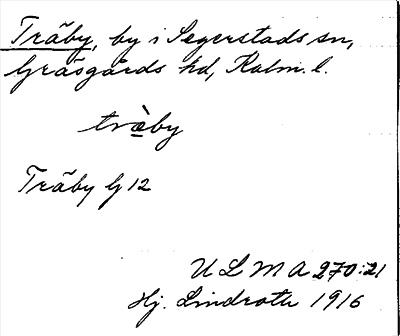 Träby, by i Segerstads sn,
Gräsgårds hd, Kalm. l.
træ̀by
Träby G 12
U L M A 270:21
Hj. Lindroth 1916